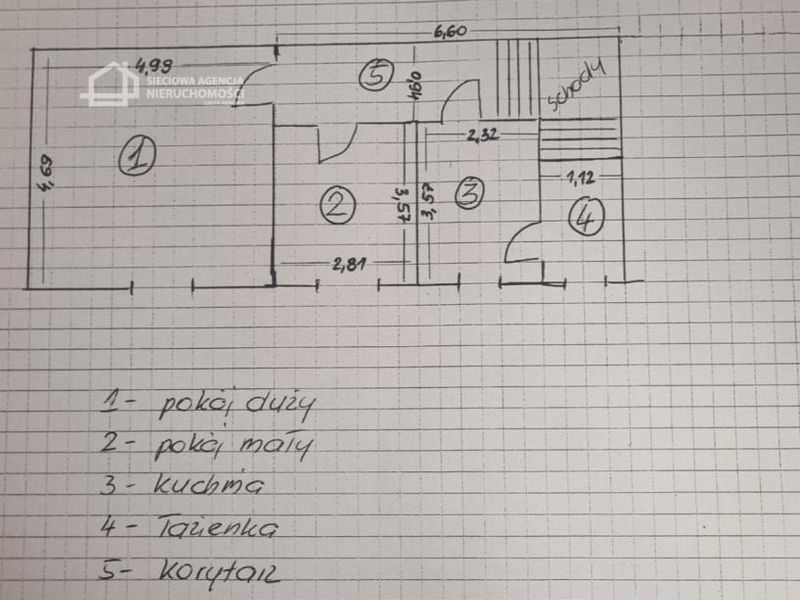 6,60
4,99
SIECIOWA AGENCJA
NIERUCHOMOŚCI
5
0,94
schody
1
4,69
2,32
2
3,57
3,57
3
1,12
4
2,81
1- pokój duży
2- pokój mały
3- kuchnia
4- łazienka
5- korytarz